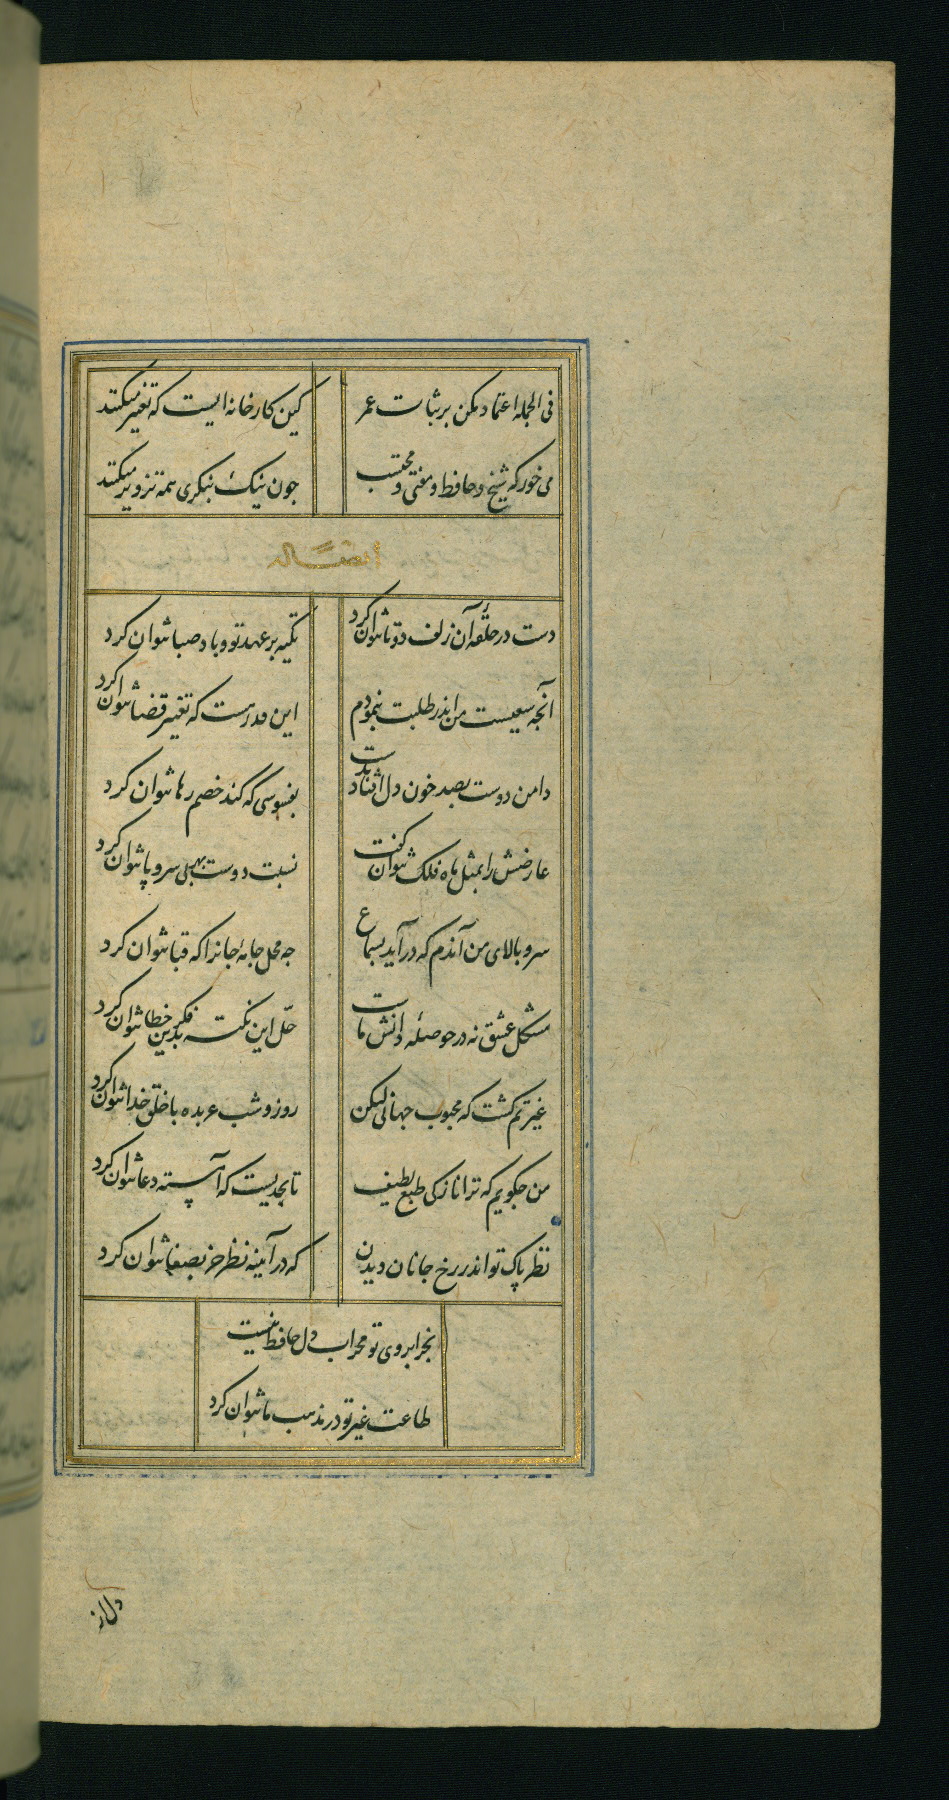 فی الجمله اعتماد مکن بر ثبات عمر
کین کارخانه ایست که تغییر میکنند
می خور که شیخ و حافظ و مفتی و محتسب
چون نیک بنکری همه تزویر میکنند
ایضاله
دست در حلقه آن زلف دوتا نتوان کرد
تکیه بر عهد تو و باد صبا نتوان کرد
آنچه سعیست من اندر طلبت بنمودم
این قدر هست که تغییر قضا نتوان کرد
دامن دوست بصد خون دل افتاد بدست
بفسوسی که کند خصم رها نتوان کرد
عارضش را بمثل ماه فلک نتوان کفت
نسبت دوست بهر بی سر و پا نتوان کرد
سرو بالای من آندم که درآید بسماع
چه محل جامهٔ جانرا که قبا نتوان کرد
مشکل عشق نه در حوصلهٔ دانش ماست
حلّ این نکته بدین فکر خطا نتوان کرد
غیرتم کشت که محبوب جهانی لیکن
روز و شب عربده با خلق خدا نتوان کرد
من چکویم که ترا نازکی طبع لطیف
تا بحدیست که آهسته دعا نتوان کرد
نظر پاک تواند رخ جانان دیدن
که در آینه نظر جز بصفا نتوان کرد
بجز ابروی تو محراب دل حافظ نیست
طاعت غیر تو در مذهب ما نتوان کرد
دل از